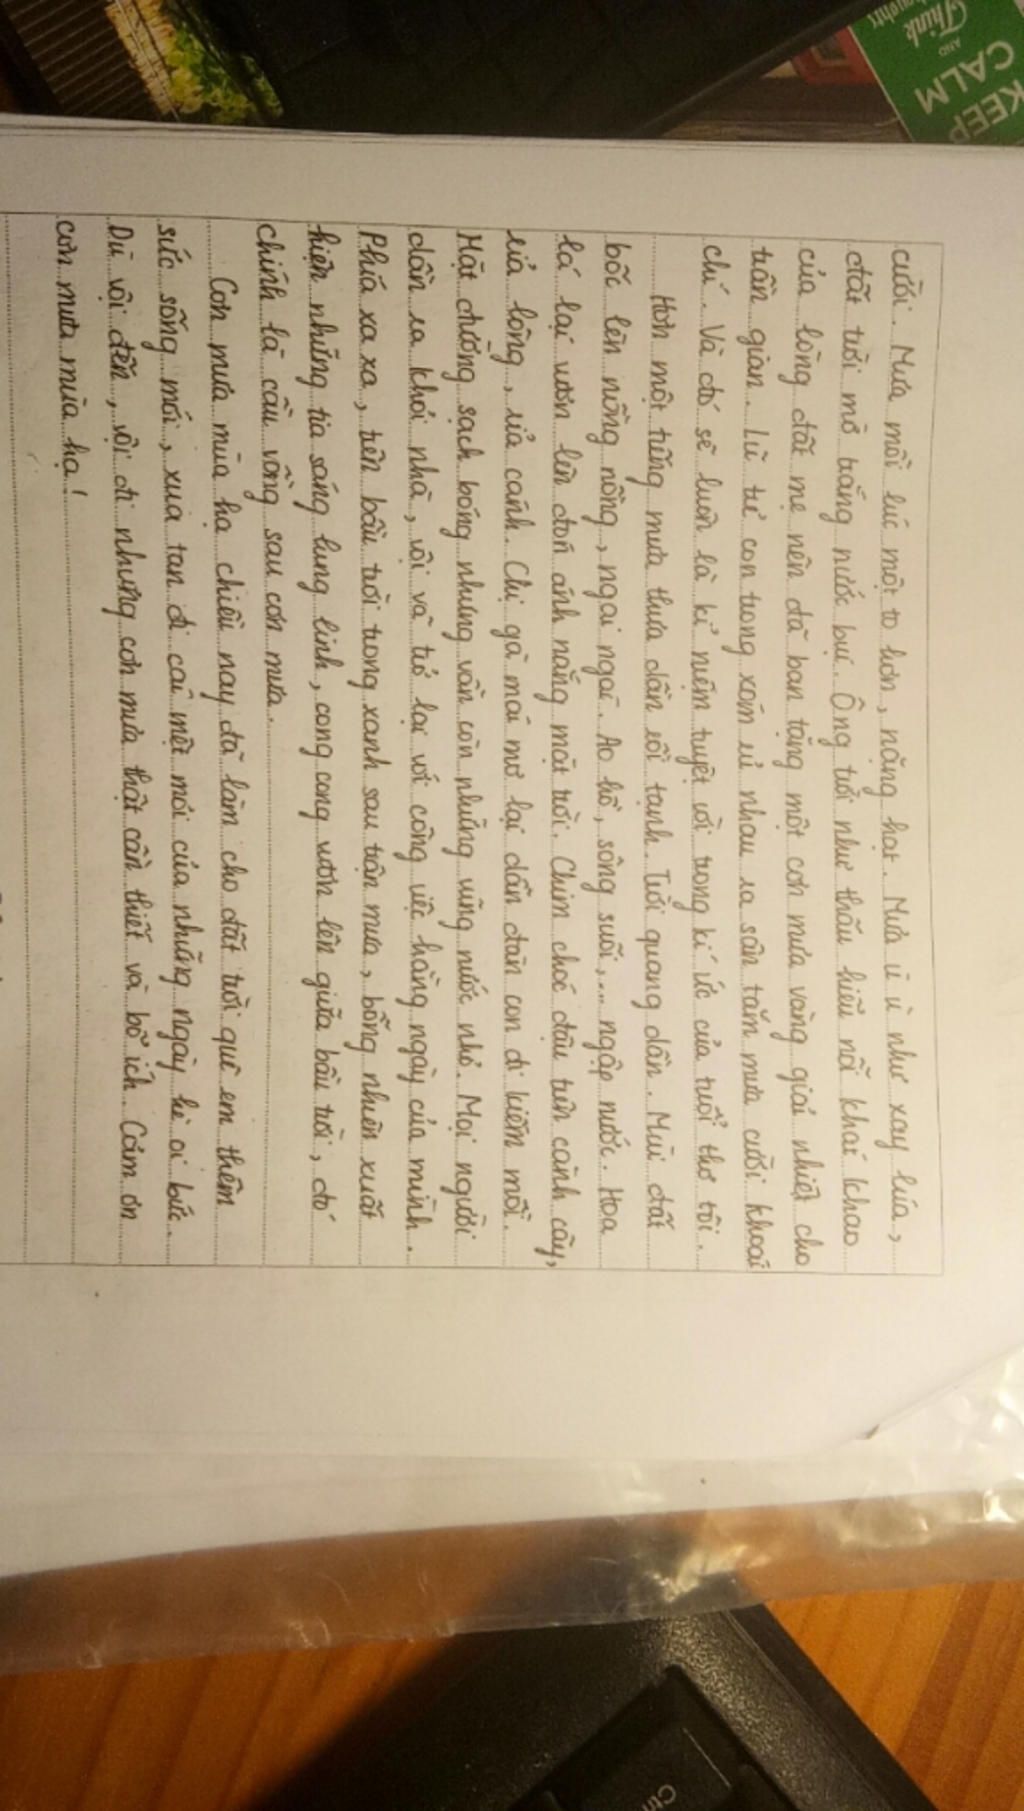 cười. Mưa mỗi lúc một to hơn, nặng hạt. Mưa ù ù như xay lúa,
đất trời mờ trắng nước bụi. Ông trời như thấu hiểu nỗi khát khao
của lòng đất mẹ nên đã ban tặng một cơn mưa vàng giải nhiệt cho
trần gian. Lũ trẻ con trong xóm rủ nhau ra sân tắm mưa cười khoái
chí. Và đó sẽ luôn là kỉ niệm tuyệt vời trong kí ức của tuổi thơ tôi.
Hơn một tiếng mưa thưa dần rồi tạnh. Trời quang dần. Mùi đất
bốc lên nồng nồng, ngai ngái. Ao hồ, sông suối,... ngập nước. Hoa
lá lại vươn lên đón ánh nắng mặt trời. Chim chóc đậu trên cành cây,
rỉa lông, rỉa cánh. Chị gà mái mơ lại dẫn đàn con đi kiếm mồi.
Mặt đường sạch bóng nhưng vẫn còn những vũng nước nhỏ. Mọi người
dần ra khỏi nhà, vội vã trở lại với công việc hằng ngày của mình.
Phía xa xa, trên bầu trời trong xanh sau trận mưa, bỗng nhiên xuất
hiện những tia sáng lung linh, cong cong vươn lên giữa bầu trời, đó
chính là cầu vồng sau cơn mưa.
Cơn mưa mùa hạ chiều nay đã làm cho đất trời quê em thêm
sức sống mới, xua tan đi cái mệt mỏi của những ngày hè oi bức.
Dù vội đến, vội đi nhưng cơn mưa thật cần thiết và bổ ích. Cảm ơn
cơn mưa mùa hạ!
KEEP
CALM
AND
Think
Ctrl